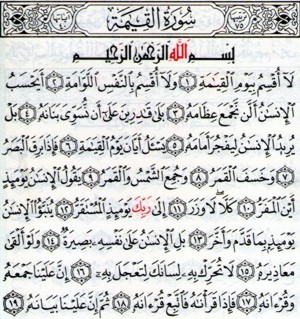 سُورَةُ القِيَامَةِ
بِسْمِ اللَّهِ الرَّحْمَٰنِ الرَّحِيمِ
لَا أُقْسِمُ بِيَوْمِ الْقِيَٰمَةِ ١ وَلَا أُقْسِمُ بِالنَّفْسِ اللَّوَّامَةِ ٢ أَيَحْسَبُ
الْإِنسَٰنُ أَلَّن نَّجْمَعَ عِظَامَهُ ٣ بَلَىٰ قَٰدِرِينَ عَلَىٰ أَن نُّسَوِّيَ بَنَانَهُ ٤ بَلْ
يُرِيدُ الْإِنسَٰنُ لِيَفْجُرَ أَمَامَهُ ٥ يَسْـَٔلُ أَيَّانَ يَوْمُ الْقِيَٰمَةِ ٦ فَإِذَا بَرِقَ الْبَصَرُ
٧ وَخَسَفَ الْقَمَرُ ٨ وَجُمِعَ الشَّمْسُ وَالْقَمَرُ ٩ يَقُولُ الْإِنسَٰنُ يَوْمَئِذٍ
أَيْنَ الْمَفَرُّ ١٠ كَلَّا لَا وَزَرَ ١١ إِلَىٰ رَبِّكَ يَوْمَئِذٍ الْمُسْتَقَرُّ ١٢ يُنَبَّؤُا الْإِنسَٰنُ
يَوْمَئِذٍ بِمَا قَدَّمَ وَأَخَّرَ ١٣ بَلِ الْإِنسَٰنُ عَلَىٰ نَفْسِهِ بَصِيرَةٌ ١٤ وَلَوْ أَلْقَىٰ
مَعَاذِيرَهُ ١٥ لَا تُحَرِّكْ بِهِ لِسَانَكَ لِتَعْجَلَ بِهِ ١٦ إِنَّ عَلَيْنَا جَمْعَهُ
وَقُرْءَانَهُ ١٧ فَإِذَا قَرَأْنَٰهُ فَاتَّبِعْ قُرْءَانَهُ ١٨ ثُمَّ إِنَّ عَلَيْنَا بَيَانَهُ ١٩